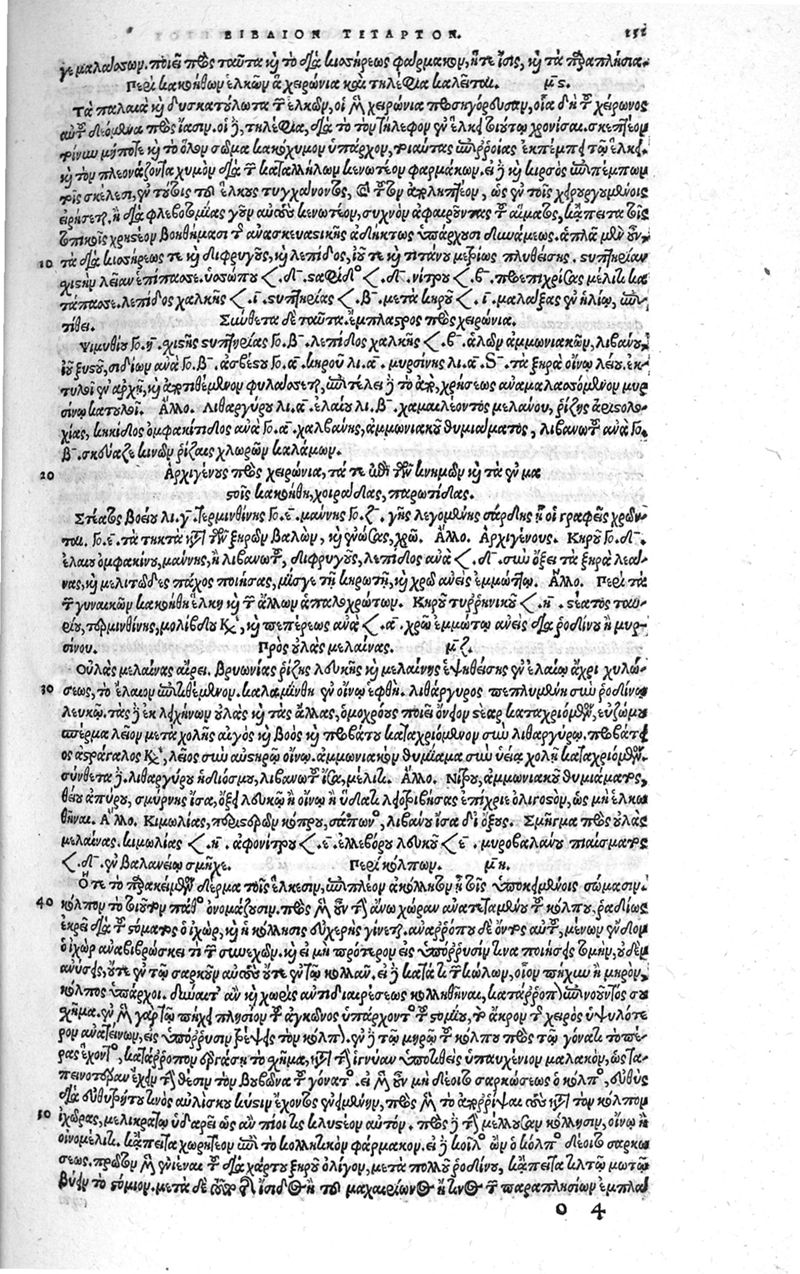 ΒΙΒΛΙΟΝ ΤΕΤΑΡΤΟΝ. 151
γε μαλάσσων. ποιεῖ πρὸς ταῦτα καὶ τὸ διὰ κισσήρεως φάρμακον, ἥτε ἶσις, καὶ τὰ παραπλήσια.
Περὶ κακοήθων ἑλκῶν ἃ χειρώνια καὶ τηλέφια καλεῖται. μς.
Τὰ παλαιὰ καὶ δυσκατούλωτα τῶν ἑλκῶν, οἱ μὲν χειρώνια προσηγόρευσαν, οἷα δὴ τοῦ χείρωνος
αὐτοῦ δεόμενα πρὸς ἴασιν. οἱ δὲ, τηλέφια, διὰ τὸ τὸν τήλεφον ἐν ἕλκει τοιούτῳ χρονίσαι. σκεπτέον
μήποτε καὶ τὸ ὅλον σῶμα κακόχυμον ὑπάρχον, τοιαύτας ἐπιρροίας ἐκπέμπει τῷ ἕλκει.
καὶ τὸν πλεονάζοντα χυμὸν διὰ τῶν καταλλήλων κενωτέον φαρμάκων. εἰ δὲ καὶ κιρσὸς ἐπιπέμπων
τοῖς σκέλεσι, ἕλκους τυγχάνοντος, ὡς ἐν τοῖς χειρουργουμένοις
εἰρήσεται, ἢ διὰ φλεβοτομίας γοῦν αὐτοὺς κενωτέον, συχνὸν ἀφαιροῦντας τοῦ αἵματος, κἄπειτα τοῖς
τοπικοῖς χρηστέον βοηθήμασι τοῖς ἀνασκευαστικῆς ἀδήκτως ὑπάρχουσι δυνάμεως. ἁπλᾶ μὲν οὖν
10 τὰ διὰ κισσήρεως τε καὶ διφρυγοῦς, καὶ λεπίδος, ἰοῦ τε καὶ τιτάνου μετρίως πλυθείσης. στυπτηρίαν
σχιστὴν λείαν ἐπίπασσε. ὑσσώπου 𐆐. δ. σταφίδος 𐆐. δ. νίτρου 𐆐. β. προεπιχρίσας μέλιτι κα
τάπασσε. λεπίδος χαλκῆς 𐆐. ι. στυπτηρίας 𐆐. β. μετὰ κηροῦ 𐆐. ι. μαλάξας ἐν ἡλίῳ, ἐπι
τίθει. Σύνθετα δὲ ταῦτα. ἔμπλαστρος πρὸς χειρώνια.
Ψιμυθίου Γο. η. σχιστῆς στυπτηρίας Γο. β. λεπίδος χαλκῆς 𐆐. β. ἁλῶν ἀμμωνιακῶν, λιβάνου,
ἰοῦ ξυστοῦ, σιδίων ἀνὰ Γο. β. ἀσβέστου Γο. α. κηροῦ λι. α. μυρσίνης λι. α. S. τὰ ξηρὰ οἴνῳ λείου ἐκ
ἐν ἀρχῇ, καὶ ἀποτιθέμενον φυλάσσεται, ἐπὶ τέλει δὲ τὸ ἀπὸ, χρήσεως ἀναμαλασσόμενον μυρ
σίνῳ κατουλοῖ. Ἄλλο. Λιθαργύρου λι. α. ἐλαίου λι. β. χαμαιλέοντος μέλανος, ῥίζης ἀριστολο
χίας, κηκίδος ὀμφακίτιδος ἀνὰ Γο. α. χαλβάνης, ἀμμωνιακοῦ θυμιάματος, λιβανωτοῦ ἀνὰ Γο.
β. σκεύαζε κινῶν ῥίζαις χλωρῶν καλάμων.
20 Ἀρχιγένους πρὸς χειρώνια, τά τε ἐπὶ τῶν κνημῶν καὶ τὰ ἐν μα
στοῖς κακοήθη, χοιράδας, παρωτίδας.
Στέατος βοείου λι. γ. τερμινθίνης Γο. ε. μάννης Γο. ζ. γῆς λεγομένης σάρδης ᾗ οἱ γραφεῖς χρῶν
ται. Γο. ε. τὰ τηκτὰ κατὰ τῶν ξηρῶν βαλὼν, καὶ ἑνώσας, χρῶ. Ἄλλο. Ἀρχιγένους. Κηροῦ Γο. δ.
ἐλαίου ὀμφακίνου, μάννης, ἢ λιβανωτοῦ, διφρυγοῦς, λεπίδος ἀνὰ 𐆐. δ. σὺν ὄξει τὰ ξηρὰ λεάι
νας, καὶ μελιτῶδες πάχος ποιήσας, μίσγε τῇ κηρωτῇ, καὶ χρῶ ἀνεὶς ἐμμότῳ. Ἄλλο. Περὶ τὰ
τῶν γυναικῶν κακοήθη ἕλκη καὶ τῶν ἄλλων ἁπαλοχρώτων. Κηροῦ τυρρηνικοῦ 𐆐. η. στέατος ταυ
ρείου, τερμινθίνης, μολίβδου κεκαυμένου, καὶ πεπέρεως ἀνὰ 𐆐. α. χρῶ ἐμμότῳ ἀνεὶς διὰ ῥοδίνου ἢ μυρ
σίνου. Πρὸς οὐλὰς μελαίνας. μζ.
Οὐλὰς μελαίνας αἴρει. βρυωνίας ῥίζης λευκῆς καὶ μελαίνης ἑψηθείσης ἐν ἐλαίῳ ἄχρι χυλώ
30 σεως, τὸ ἔλαιον ἐπιτιθέμενον. καλαμίνθη ἐν οἴνῳ ἑφθή. λιθάργυρος πεπλυμένη σὺν ῥοδίνῳ
λευκῷ. τὰς δὲ ἐκ λειχήνων οὐλὰς καὶ τὰς ἄλλας, ὁμοχρόους ποιεῖ ὄνειον στέαρ καταχριόμενον, εὐζώμου
σπέρμα λεῖον μετὰ χολῆς αἰγὸς καὶ βοὸς καὶ προβάτου καταχριόμενον σὺν λιθαργύρῳ. προβάτει
ος ἀστράγαλος κεκαυμένος, λεῖος σὺν αὐστηρῷ οἴνῳ. ἀμμωνιακὸν θυμίαμα σὺν ὑείᾳ χολῇ καταχριόμενον.
σύνθετα δὲ. λιθαργύρου ἡδύοσμου, λιβανωτοῦ ἴσα, μέλιτι. Ἄλλο. Νίτρου, ἀμμωνιακοῦ θυμιάματος,
θείου ἀπύρου, σμύρνης ἴσα, ὄξει λευκῷ ἢ οἴνῳ ἢ ὕδατι ἐπίχριε ὀλιγοστὸν, ὡς μὴ ἑλκω
θῆναι. Ἄλλο. Κιμωλίας, περιστερῶν κόπρου, σάπωνος, λιβάνου ἴσα δι᾽ ὄξους. Σμῆγμα πρὸς οὐλὰς
μελαίνας. κιμωλίας 𐆐. η. ἀφρονίτρου 𐆐. ε. ἐλλεβόρου λευκοῦ 𐆐. ε. μυροβαλάνου πιάσματος
𐆐. δ. ἐν βαλανείῳ σμῆχε. Περὶ κόλπων. μη.
Ὅτε τὸ προκείμενον δέρμα τοῖς ἕλκεσιν, ἐπιπλέον ἀκόλλητον ᾖ τοῖς ὑποκειμένοις σώμασιν.
40 κόλπον τὸ τοιοῦτον πάθος ὀνομάζουσιν. πρὸς μὲν οὖν τὴν ἄνω χώραν ἀνατεταμένου τοῦ κόλπου, ῥαδίως
ἐκρεῖ διὰ τοῦ στόματος ὁ ἰχὼρ, καὶ ἡ κόλλησις εὐχερὴς γίνεται. ἀναρρόπου δὲ ὄντος αὐτοῦ, μένων ἔνδον
ὁ ἰχὼρ ἀναβιβρώσκει τι τῶν συνεχῶν. καὶ εἰ μὴ πρότερον εἰς ὑπόρρυσίν τινα ποιήσῃς τομὴν, οὐδὲν
ἀνύσεις, οὔτε ἐν τῷ σαρκοῦν αὐτοὺς οὔτε ἐν τῷ κολλᾶν. εἰ δὲ κατά τι τῶν κώλων, οἷον πῆχυν ἢ μηρὸν,
κόλπος ὑπάρχοι. δύναιτ᾽ ἂν καὶ χωρὶς ἀντιδιαιρέσεως κολληθῆναι, κατάρροπον ἐπινοοῦντος σου
σχῆμα. ἐν μὲν γὰρ τῷ πήχει πλησίον τοῦ ἀγκῶνος ὑπάρχοντος τοῦ στομίου, τὸ ἄκρον τῆς χειρὸς ὑψηλότε
ρον ἀνατείνων, εἰς ὑπόρρυσιν τρέψεις τὸν κόλπον. ἐν δὲ τῷ μηρῷ τοῦ κόλπου πρὸς τῷ γόνατι τὸ πέ
ρας ἔχοντος, κατάρροπον ἐργάσῃ τὸ σχῆμα, κατὰ τὴν ἰγνύαν ὑποτιθεὶς ὑπαυχένιον μαλακὸν, ὡς τα
πεινοτέραν ἔχειν τὴν θέσιν τὸν βουβῶνα τοῦ γόνατος. εἰ μὲν οὖν μὴ δέοιτο σαρκώσεως ὁ κόλπος, εὐθὺς
διὰ εὐθυτρήτου τινὸς αὐλίσκου κύστιν ἔχοντος ἐνιέμενον, πρὸς μὲν τὸ ἀπορρίψαι τοὺς κατὰ τὸν κόλπον
50 ἰχῶρας, μελικράτῳ ὑδαρεῖ ὡς ἂν πίοι τις κλυστέον αὐτόν. πρὸς δὲ τὴν μέλλουσαν κόλλησιν, οἴνῳ ἢ
οἰνομέλιτι. κἄπειτα χωρητέον ἐπὶ τὸ κολλητικὸν φάρμακον. εἰ δὲ κοῖλος ὢν ὁ κόλπος δέοιτο σαρκώ
σεως. πρῶτον μὲν ἐνιέναι τοῦ διὰ χάρτου ξηροῦ ὀλίγον, μετὰ πολλοῦ ῥοδίνου, κἄπειτα μοτῷ
βύειν τὸ στόμιον. μετὰ δὲ τοῦτο τὴν ἴσιδος ἢ τοῦ μαχαιρίωνος ἤ τινος τῶν παραπλησίων ἐμπλα
ο 4